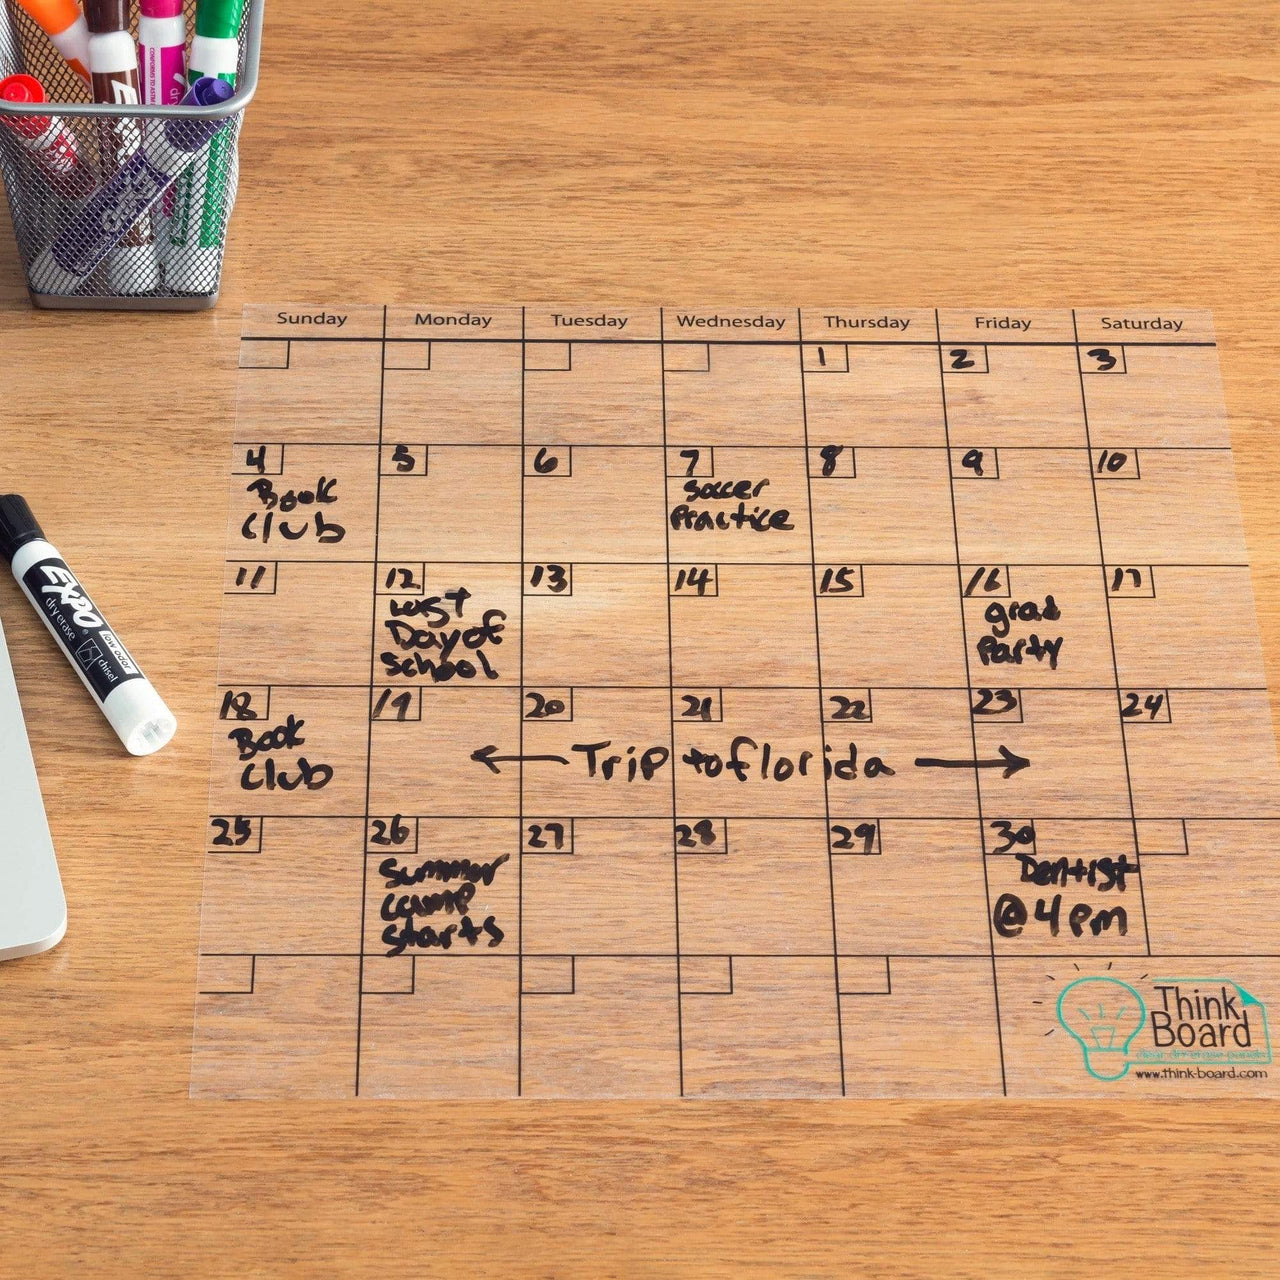 Sunday Monday Tuesday Wednesday Thursday Friday Saturday
1 2 3
4 5 6 7 8 9 10
Book
Club
Soccer
Practice
11 12 13 14 15 16 17
Last
Day of
School
grad
Party
18 19 20 21 22 23 24
Book
Club
Trip to florida
25 26 27 28 29 30
Summer
camp
starts
Dentist
@ 4 pm
Think
Board
clear dry erase panels
www.think-board.com
EXPO
dry erase
low odor
chisel